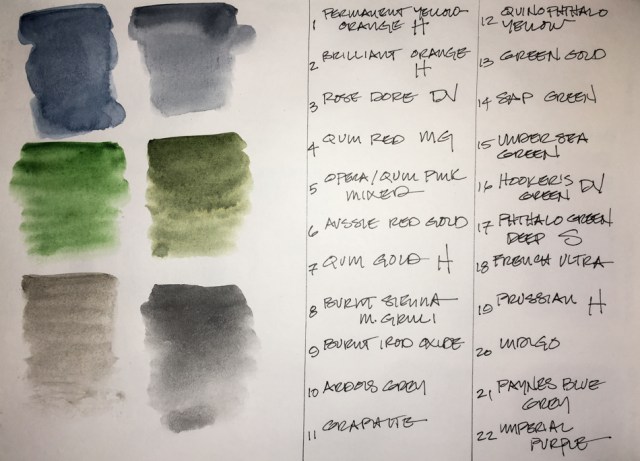 1 PERMANENT YELLOW
ORANGE H
2 BRILLIANT ORANGE
H
3 ROSE DORE DV
4 QUIN RED MG
5 OPERA/QUIN PINK
MIXED
6 AUSSIE RED GOLD
7 QUIN GOLD H
8 BURNT SIENNA
M. GRMLI
9 BURNT IRON OXIDE
10 ARDOIS GREY
11 GRAPHITE
12 QUINOPHTHALO
YELLOW
13 GREEN GOLD
14 SAP GREEN
15 UNDERSEA
GREEN
16 HOOKER'S DV
GREEN
17 PHTHALO GREEN
DEEP S
18 FRENCH ULTRA
19 PRUSSIAN H
20 INDIGO
21 PAYNES BLUE
GREY
22 IMPERIAL
PURPLE